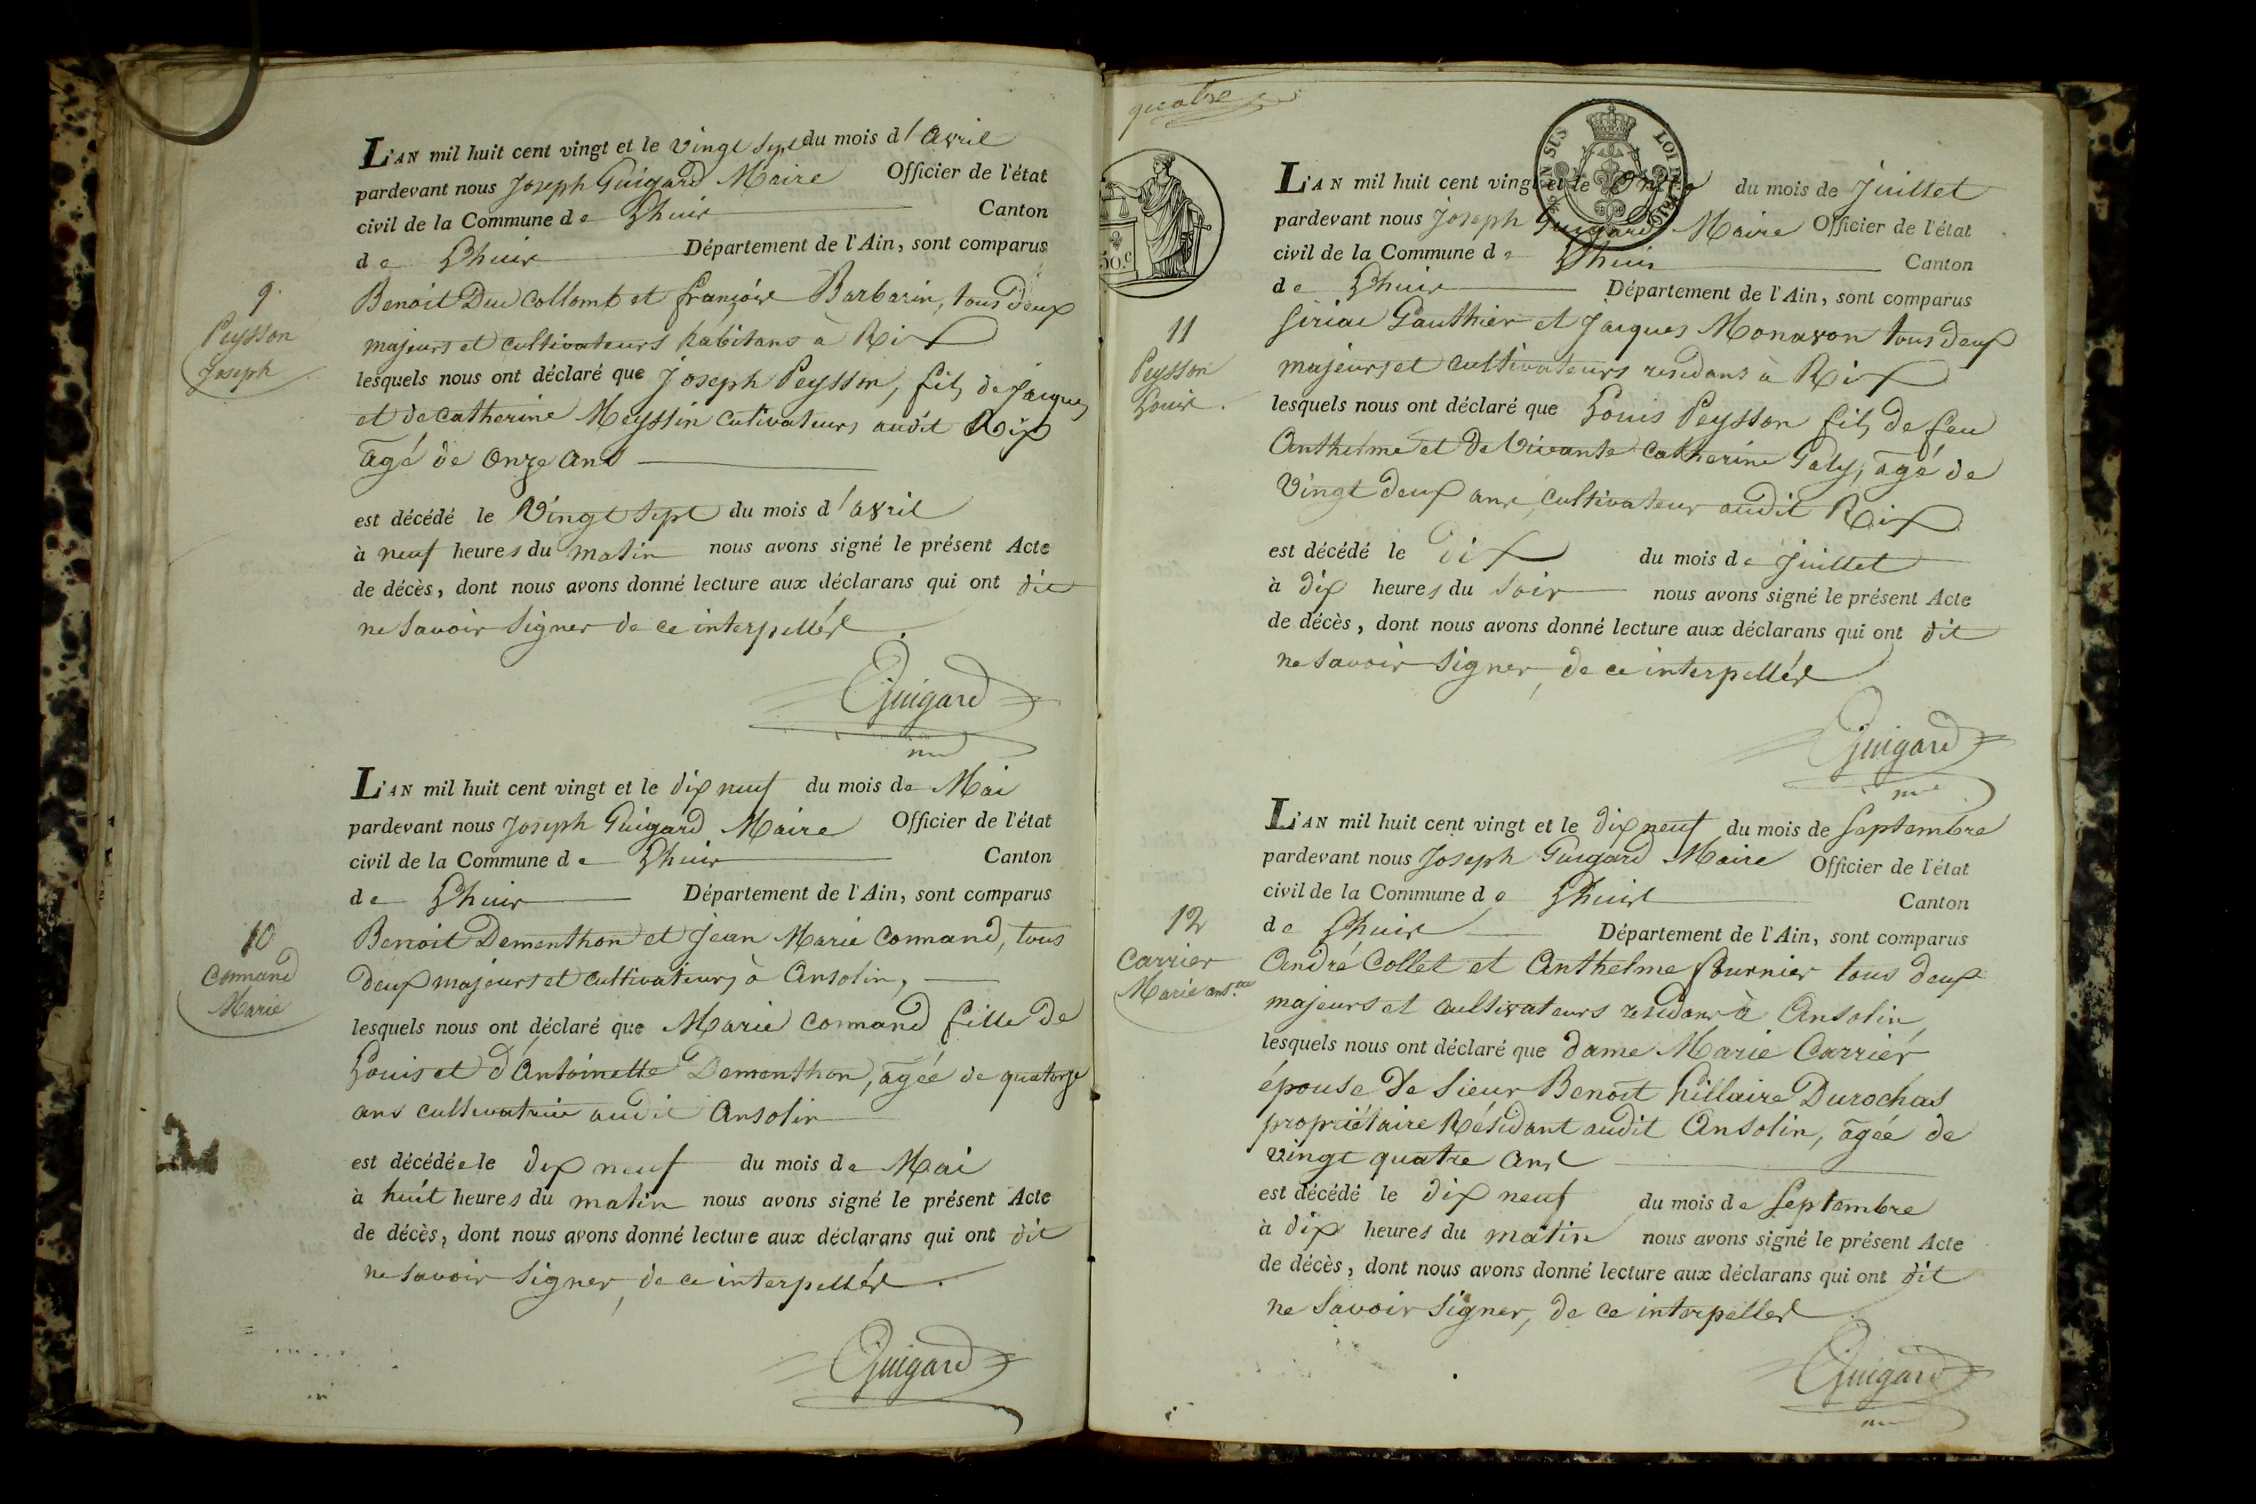 L'AN mil huit cent vingt et le vingt sept du mois d'avril
pardevant nous Joseph Guigard Maire Officier de l'état
civil de la Commune de Lhuis Canton
de Lhuis Département de l'Ain, sont comparus
9.
Peysson
Joseph
Benoit Ducollomb et françoise Barbarin, tous deux
majeurs et cultivateurs habitans à Rix
lesquels nous ont déclaré que Joseph Peysson, fils de Jacques
et de catherine Meyssin cutivateurs audit Rix
âgé de onze ans
est décédé le Vingt sept du mois d'avril
à neuf heures du matin nous avons signé le présent Acte
de décès, dont nous avons donné lecture aux déclarans qui ont dit
ne savoir signer de ce interpellés
Guigard
L'AN mil huit cent vingt et le dix neuf du mois de Mai
pardevant nous Joseph Guigard Maire Officier de l'état
civil de la Commune de Lhuis Canton
de Lhuis Département de l'Ain, sont comparus
10
Connand
Marie
Benoit Dementhon et Jean Marie Connand, tous
deux majeurs et cultivateurs à Ansolin,
lesquels nous ont déclaré que Marie Connand fille de
Louis et d'Antoinette Dementhon, âgée de quatorze
ans cultivatrice audit Ansolin
est décédée le dix neuf du mois de Mai
à huit heures du matin nous avons signé le présent Acte
de décès, dont nous avons donné lecture aux déclarans qui ont dit
ne savoir signer, de ce interpellés.
Guigard
quatre
50.c
L'AN mil huit cent vingt et le onze du mois de Juillet
pardevant nous Joseph Guigard Maire Officier de l'état
civil de la Commune de Lhuis Canton
de Lhuis Département de l'Ain, sont comparus
11
Peysson
Louis.
Siriac Gauthier et Jacques Monavon tous deux
majeurs et cultivateurs residans à Rix
lesquels nous ont déclaré que Louis Peysson fils de feu
Anthelme et de Vivante Catherine Paly, âgé de
Vingt deux ans, cultivateur audit Rix
est décédé le dix du mois de Juillet
à dix heures du soir nous avons signé le présent Acte
de décès, dont nous avons donné lecture aux déclarans qui ont dit
ne savoir signer, de ce interpellés
Guigard
L'AN mil huit cent vingt et le dix neuf du mois de septembre
pardevant nous Joseph Guigard Maire Officier de l'état
civil de la Commune de Lhuis Canton
de Lhuis Département de l'Ain, sont comparus
12
Carrier
Marie
André Collet et Anthelme fournier tous deux
majeurs et cultivateurs residans à Ansolin,
lesquels nous ont déclaré que dame Marie Carrier
épouse de sieur Benoit hillaire Durochas
propriétaire Résidant audit Ansolin, âgée de
vingt quatre ans
est décédé le dix neuf du mois de septembre
à dix heures du matin nous avons signé le présent Acte
de décès, dont nous avons donné lecture aux déclarans qui ont dit
ne savoir signer, de ce interpellés
Guigard